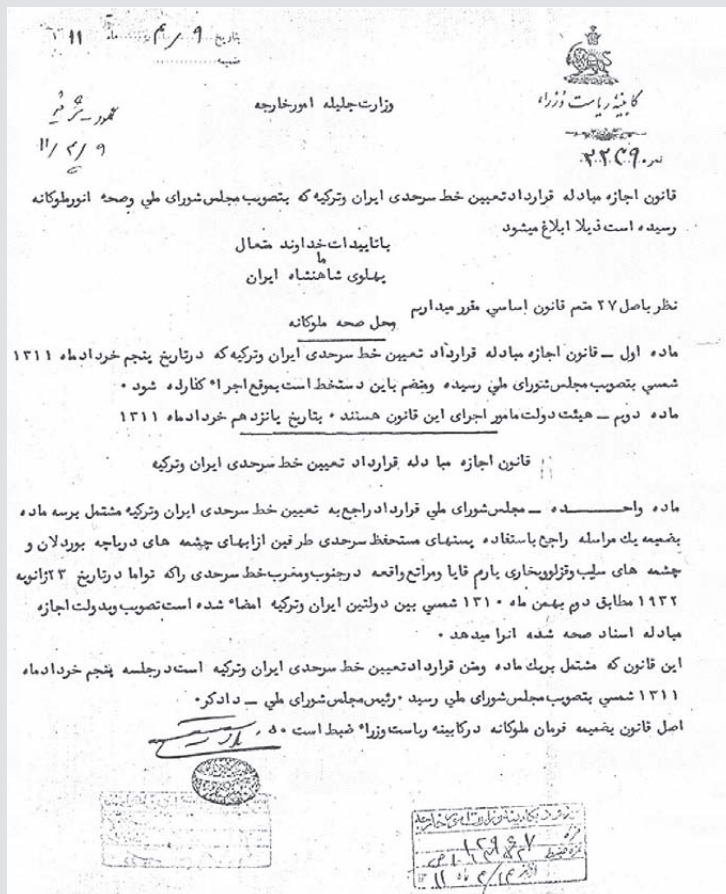 بتاریخ ۹ ماه ۱۱
ضمیمه
کابینهٔ ریاست وزراء
نمره ۲۲۴۹۰
وزارت جلیله امورخارجه
قانون اجازه مبادله قراردادتعیین خط سرحدی ایران وترکیه که بتصویب مجلس شورای ملی وصحه انورملوکانه
رسیده است ذیلا ابلاغ میشود
باتاییدات خداوند متعال
ما
پهلوی شاهنشاه ایران
نظر باصل ۲۷ متمم قانون اساسی مقرر میداریم
محل صحه ملوکانه
ماده اول ــ قانون اجازه مبادله قرارداد تعیین خط سرحدی ایران وترکیه که درتاریخ پنجم خردادماه ۱۳۱۱
شمسی بتصویب مجلس شورای ملی رسیده ومنضم باین دستخط است بموقع اجراء گذارده شود ۰
ماده دویم ــ هیئت دولت مامور اجرای این قانون هستند ۰ بتاریخ پانزدهم خردادماه ۱۳۱۱
قانون اجازه مبادله قرارداد تعیین خط سرحدی ایران وترکیه
ماده واحـــــده ــ مجلس شورای ملی قرارداد راجع به تعیین خط سرحدی ایران وترکیه مشتمل برسه ماده
بضمیمه یك مراسله راجع باستفاده پستهای مستحفظ سرحدی طرفین ازابهای چشمه های دریاچه بوردلان و
چشمه های سلیب وقزلووبخاری یارم قایا ومراتع واقعه درجنوب ومغرب خط سرحدی راکه تواما درتاریخ ۲۳ژانویه
۱۹۳۲ مطابق دوم بهمن ماه ۱۳۱۰ شمسی بین دولتین ایران وترکیه امضاء شده است تصویب وبدولت اجازه
مبادله اسناد صحه شده انرا میدهد ۰
این قانون که مشتمل بریك ماده ومتن قرارداد تعیین خط سرحدی ایران وترکیه است درجلسه پنجم خردادماه
۱۳۱۱ شمسی بتصویب مجلس شورای ملی رسید ۰ رئیس مجلس شورای ملی ــ دادگر۰
اصل قانون بضمیمه فرمان ملوکانه درکابینه ریاست وزراء ضبط است ۰